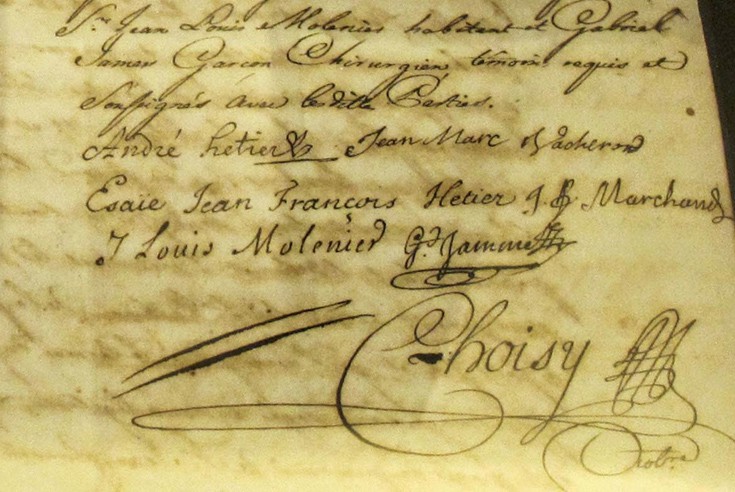 Sr. Jean Louis Molenier habitant et Gabriel
James Garcon Chirurgien témoins requis et
Soussignés avec lesdittes Parties.
André hetier Jean Marc Vacheron
Esaïe Jean François Hetier J. P. Marchand
J Louis Molenier Gl. Jamme
Choisy
Notre